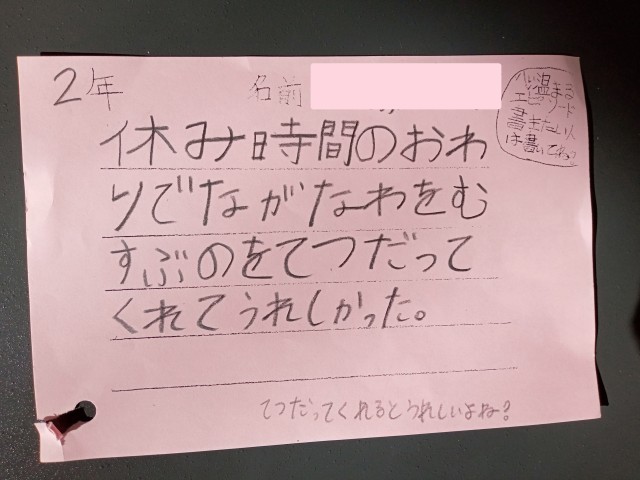 2年 名前
心温まる
エピソード
書きたい人
は書いてね♡
休み時間のおわ
りでながなわをむ
すぶのをてつだって
くれてうれしかった。
てつだってくれるとうれしいよね?